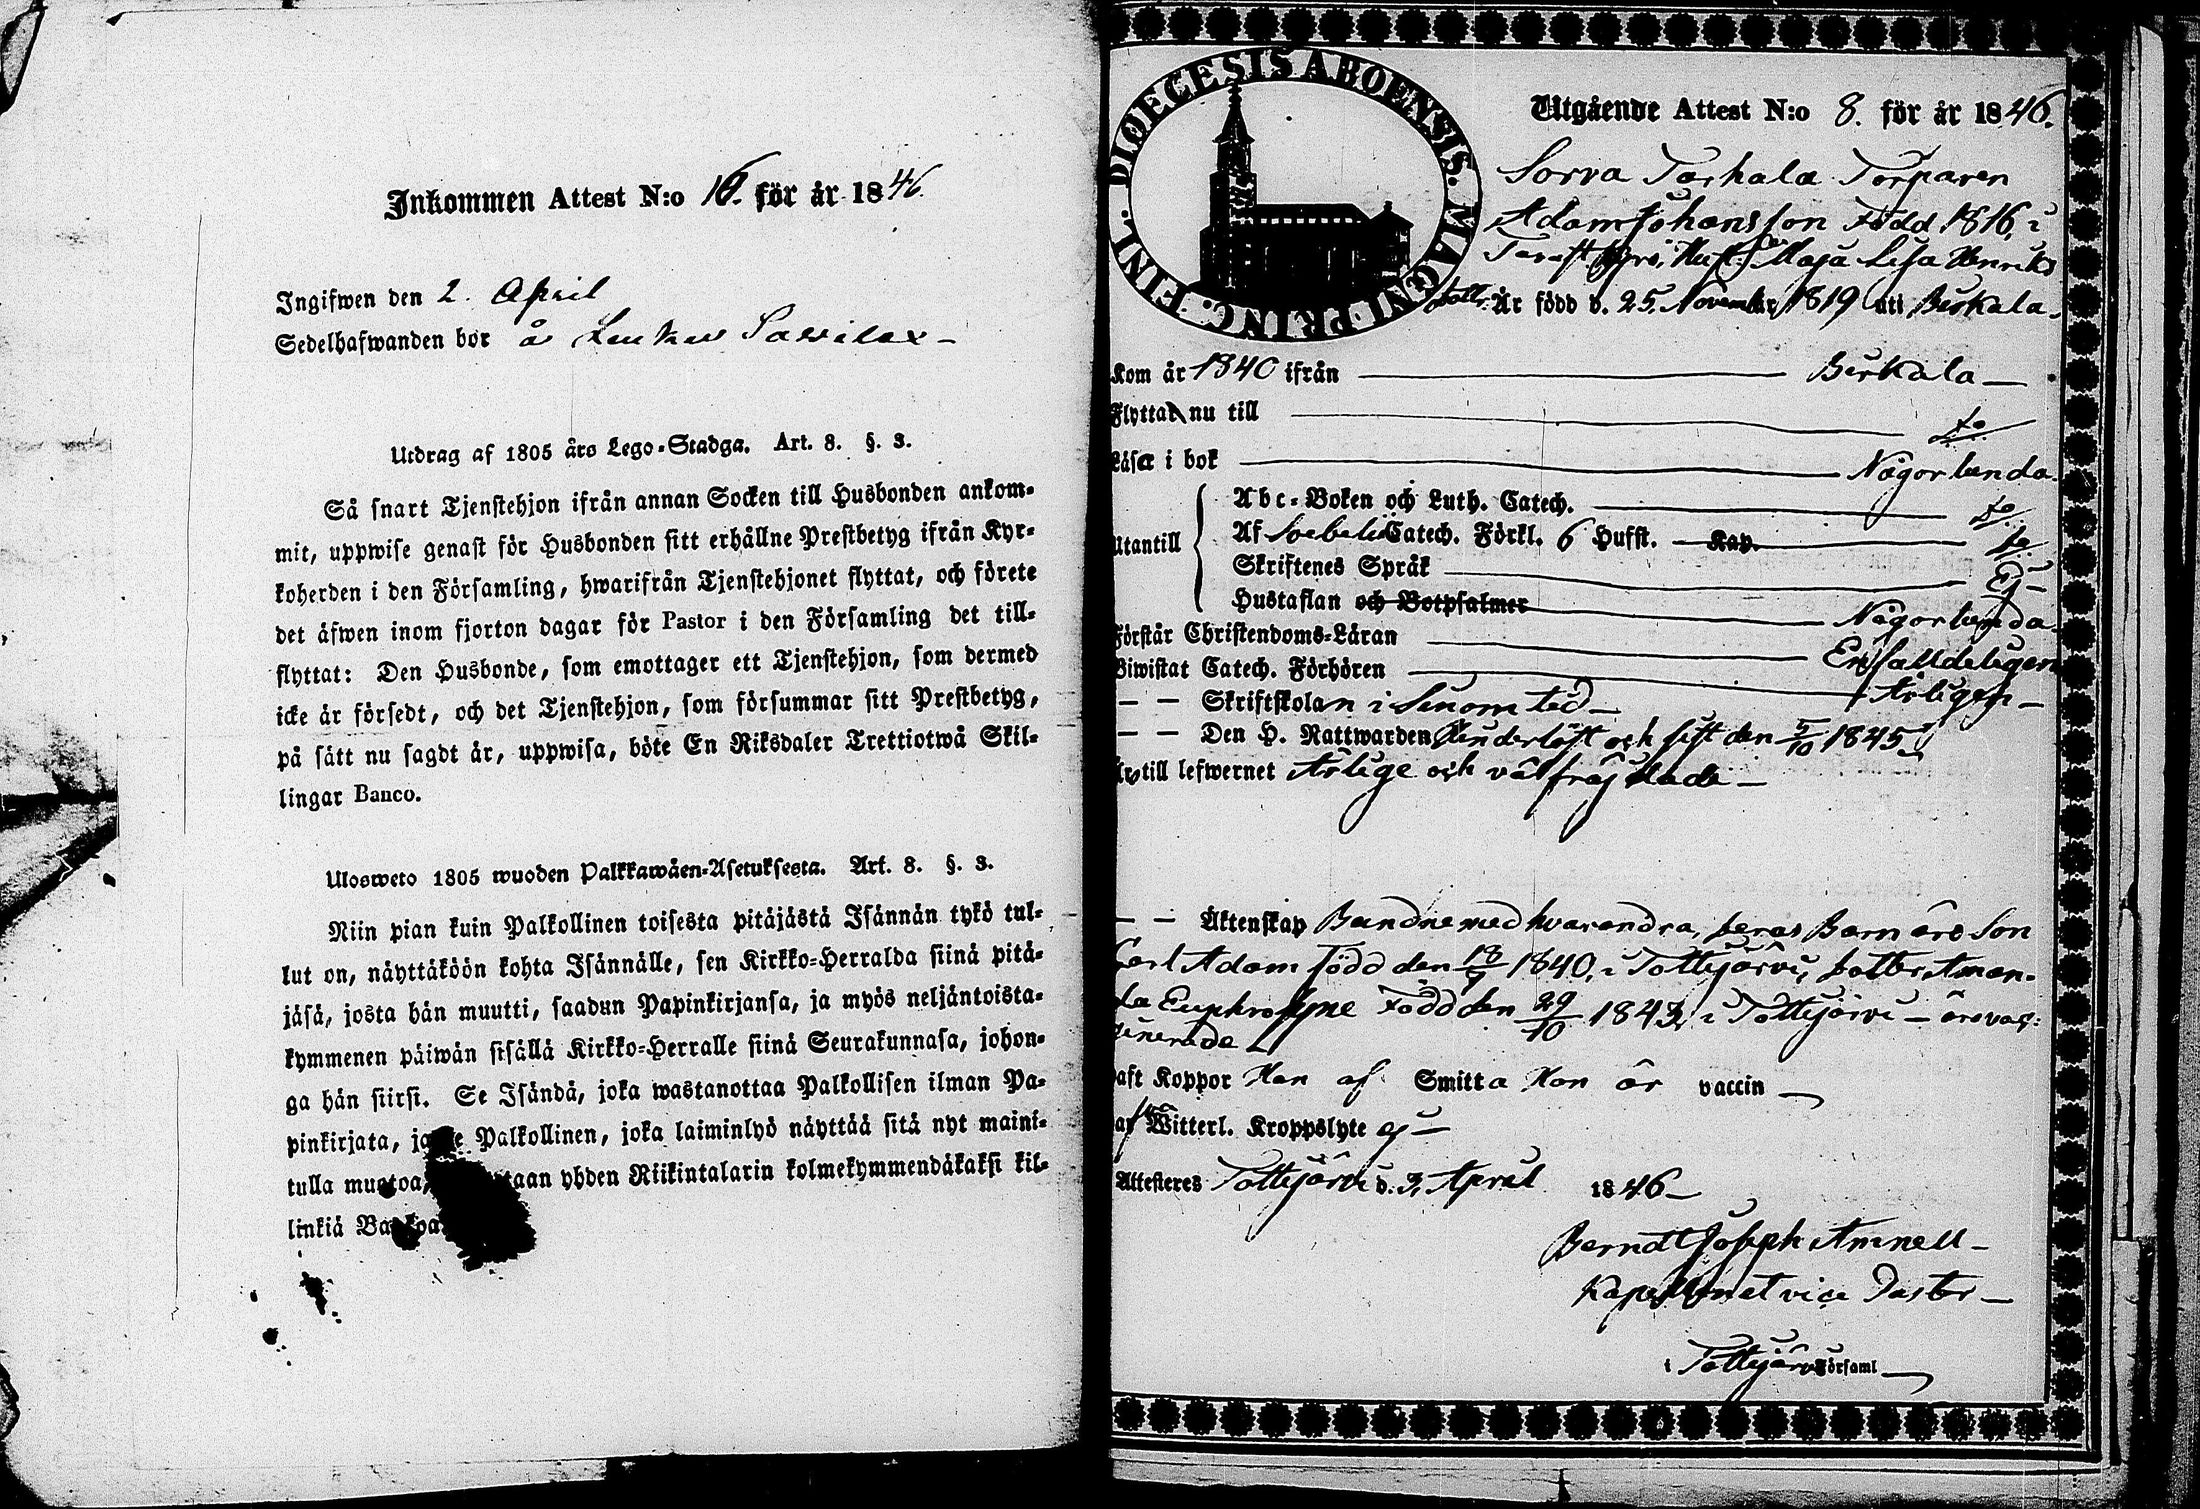 Inkommen Attest N:o 16. för år 1846.
Ingifwen den 2. April
Sedelhafwanden bor å
Utdrag af 1805 års Lego-Stadga. Art. 8. §. 3.
Så snart Tjenstehjon ifrån annan Socken till Husbonden ankom-
mit, uppwise genast för Husbonden sitt erhållne Prestbetyg ifrån Kyr-
koherden i den Församling, hwarifrån Tjenstehjonet flyttat, och förete
det äfwen inom fjorton dagar för Pastor i den Församling det till-
flyttat: Den Husbonde, som emottager ett Tjenstehjon, som dermed
icke är försedt, och det Tjenstehjon, som försummar sitt Prestbetyg,
på sätt nu sagdt är, uppwisa, böte En Riksdaler Trettiotwå Skil-
lingar Banco.
Ulosweto 1805 wuoden Palkkawäen-Asetuksesta. Art. 8. §. 3.
Niin pian kuin Palkollinen toisesta pitäjästä Isännän tykö tul-
lut on, näyttäköön kohta Isännälle, sen Kirkko-Herralda siinä pitä-
jäsä, josta hän muutti, saadun Papinkirjansa, ja myös neljäntoista-
kymmenen päiwän sisällä Kirkko-Herralle siinä Seurakunnasa, johon-
ga hän siirsi. Se Isändä, joka wastanottaa Palkollisen ilman Pa-
pinkirjata, Palkollinen, joka laiminlyö näyttää sitä nyt maini-
tulla muotoa, yhden Riikintalarin kolmekymmendäkaksi kil-
linkiä
DIOECESIS ABOENSIS. MAGNI PRINC. FINL.
Utgående Attest N:o 8. för år 1846.
Sorva Tarkala Torparen
Adam Johansson Född 1816, i
Tavastkyro, Hust. Maja Lisa Henriks
dottr. Är född d. 25. November 1819 uti Birkala.
Kom år 1840 ifrån Birkala
Flyttar nu till do
Läser i bok Någorlunda
Utantill
Abc-Boken och Luth. Catech. do
Af Svebelii Catech. Förkl. 6 Hufst. Kap. do
Skriftenes Språk Ej
Hustaflan och Botpsalmer
Förstår Christendoms-Läran Någorlunda
Biwistat Catech. Förhören
— — Skriftskolan i Sinom tid
— — Den H. Nattwarden och sist den 5/10 1845
till lefwernet Ärlige och välfräjdade
— — Äktenskap Bundne med hvarandra, deras Barn äro Son
Carl Adam född den 18/9 1840, i Tottijärvi, dotter Aman-
da Euphrosyne Född den 29/10 1843, i Tottijärvi — äro vac-
cinerade
haft Koppor Han af Smitta Hon är vaccin
Witterl. Kroppslyte ej
Attesteres Tottijärvi d. 3. April 1846
Berndt Joseph Amnell
Kapellan et vice Pastor
i Tottijärvi Församl